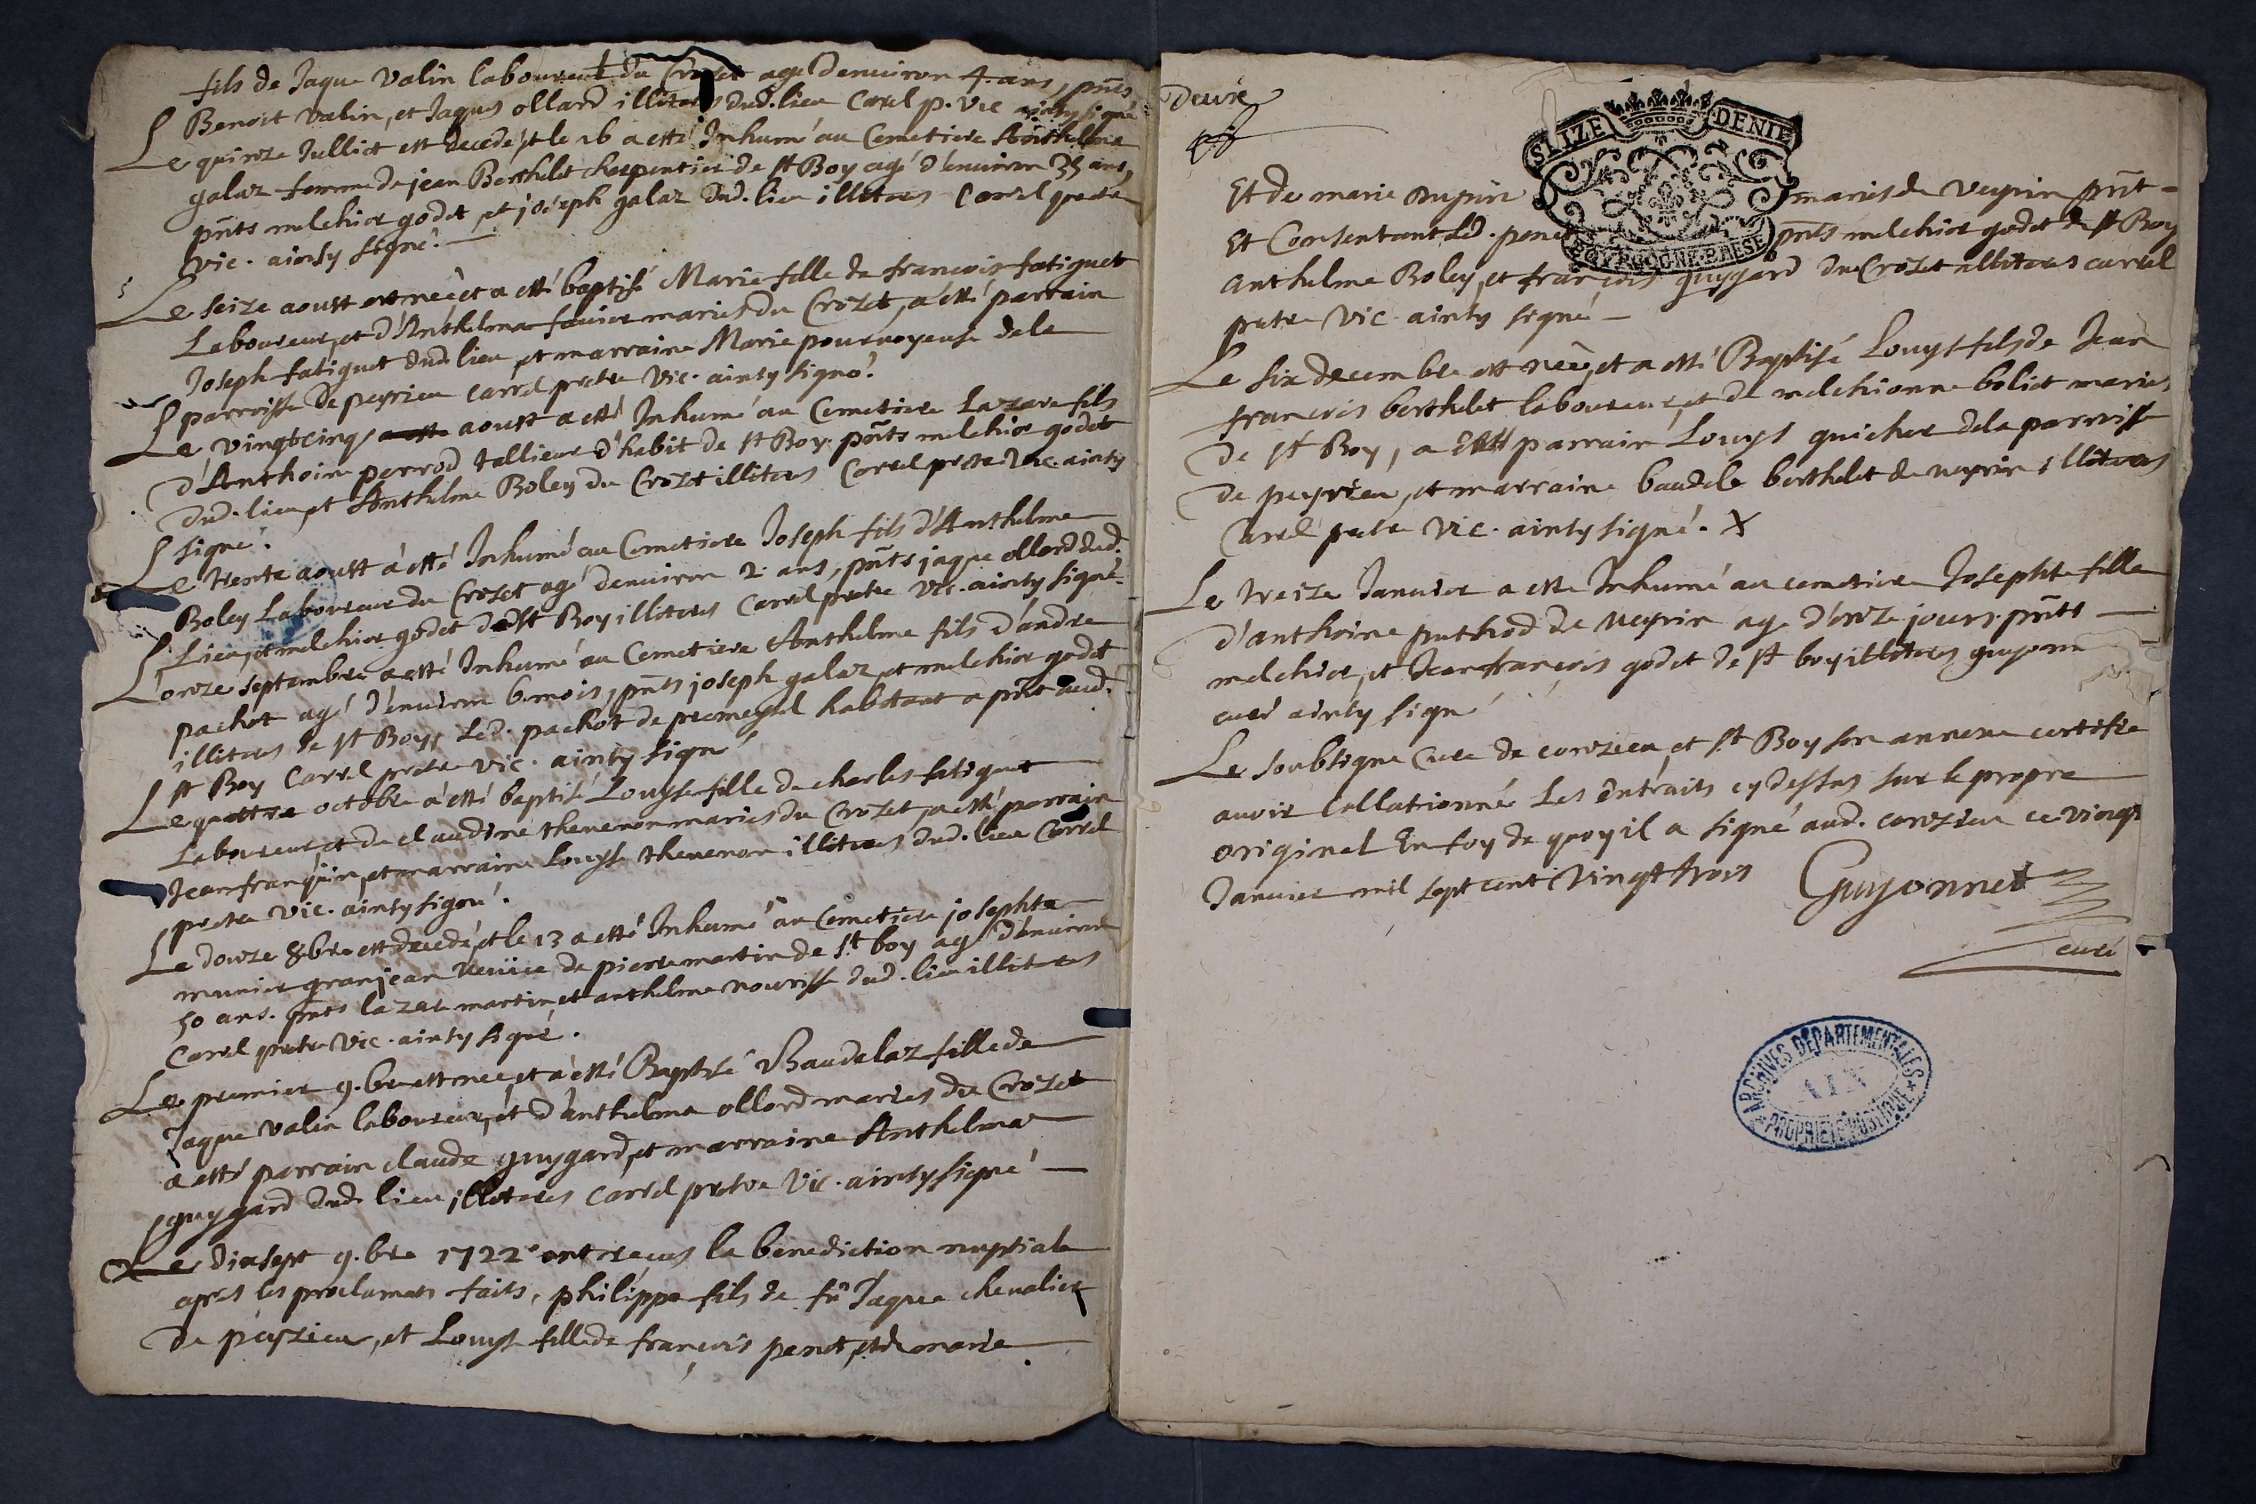 fils de Jaque Valin laboureur du Crozet agé denuiron 4. ans, pñts
Benoit Valin, et Jaques ollard illiteres dud. lieu Carrel p. vic ainsy signé
Le quinze Julliet est decedé, et le 16 a etté Inhumé au Cemetiere Anthelme
galaz femme de jean Berthelet charpentier de st Boy agé d'enuiron 35 ans,
pñts melchior godet et joseph galaz dud. lieu illiteres Carrel prestre
vic. ainsy signé. —
Le seize aoust est neê et a etté baptisé Marie fille de francois fatiguet
Laboureur, et d'Anthelma fauier mariés du Crozet, a etté parrain
Joseph fatiguet dud lieu, et marraine Marie pouruoyeuse de la
parroisse de peyzieu Carrel pretre Vic. ainsy signé.
Le Vingtcinq aoust a etté Inhumé au Cemetiere Lazare fils
d'Anthoine perrod tallieur d'habit de st Boy. pñts melchior godet
dud. lieu, et Anthelme Boley du Crozet illiteres Carrel pretre vic. ainsy
signé.
Le trente aoust a etté Inhumé au Cemetiere Joseph fils d'Anthelme
Boley Laboureur du Crozet agé denuiron 2. ans, pñts jaque ollard dud.
Lieu, et melchior godet de st Boy illiteres Carrel pretre vic. ainsy signé.
L'onze septembre a etté Inhumé au Cemetiere Anthelme fils d'andre
pachot agé d'enuiron 6. mois, pñts joseph galaz, et melchior godet
illiteres de st Boy, Led. pachot de premeyzel habitant a pñt aud.
st Boy Carrel pretre vic. ainsy signé
Le quattre octobre a etté baptisé Louyse fille de charles fatiguet
Laboureur, et de claudine theuenon mariés du Crozet, a etté parrain
Jean franquin, et marraine Louyse theuenon illiteres dud. lieu Carrel
pretre vic. ainsy signé.
Le douze 8.bre est decedé, et le 13 a etté Inhumé au Cemetiere josephte
munier granjean veuüe de pierre martin de st boy agé d'enuiron
50 ans. pñts lazare martin, et anthelme nourisse dud. lieu illiteres
Carrel pretre vic. ainsy signé.
Le premier 9.bre est neé, et a etté Baptisé Baudelaz fille de
Jaque valin laboureur, et d'anthelma ollard mariés du Crozet
a etté parrain claude guygard, et marraine Anthelma
guygard dud. lieu illiteres Carrel pretre vic. ainsy signé —
Le dixsept 9.bre 1722 ont reçeus la benediction nuptiale
apres les proclamats faits, philippe fils de fû Jaque cheualier
de peyzieu, et Louyse fille de françois penet, et de marie
Deuxe
SEIZE DENIE
Et de marie dupin mariés de Veyrin pñt –
Et Consentant Led. penet pñts melchior godet de st Boy
BOVRGOGNE BRESE
anthelme Boley, et françois guygard du Crozet illiteres carrel
pretre Vic. ainsy signé —
Le six decembre est neê, et a etté Baptisé Louys fils de Jean
francois berthelet laboureur, et de melchionne boliet mariés
de st Boy, a etté parrain Louys guicher de la parroisse
de peyzieu, et marraine baudele berthelet de neyrin illiteres
Carrel pretre Vic. ainsy signé. X
Le treize Januier a etté Inhumé au cemetiere Josephte fille
d'anthoine puthod de neyrin agé d'onze jours. pñts —
melchior, et Jean françois godet de st boy illiteres guyonnet
curé ainsy signé
Le soubsigné Cure de conzieu, et st Boy son annexe certifie
auoir Collationné Les Extraits cy dessus sur le propre
original En foy de quoy il a signé aud. conzieu ce vingt
Januier mil sept cent Vingt trois Guyonnet
curé
ARCHIVES DÉPARTEMENTALES
AIN
PROPRIÉTÉ PUBLIQUE